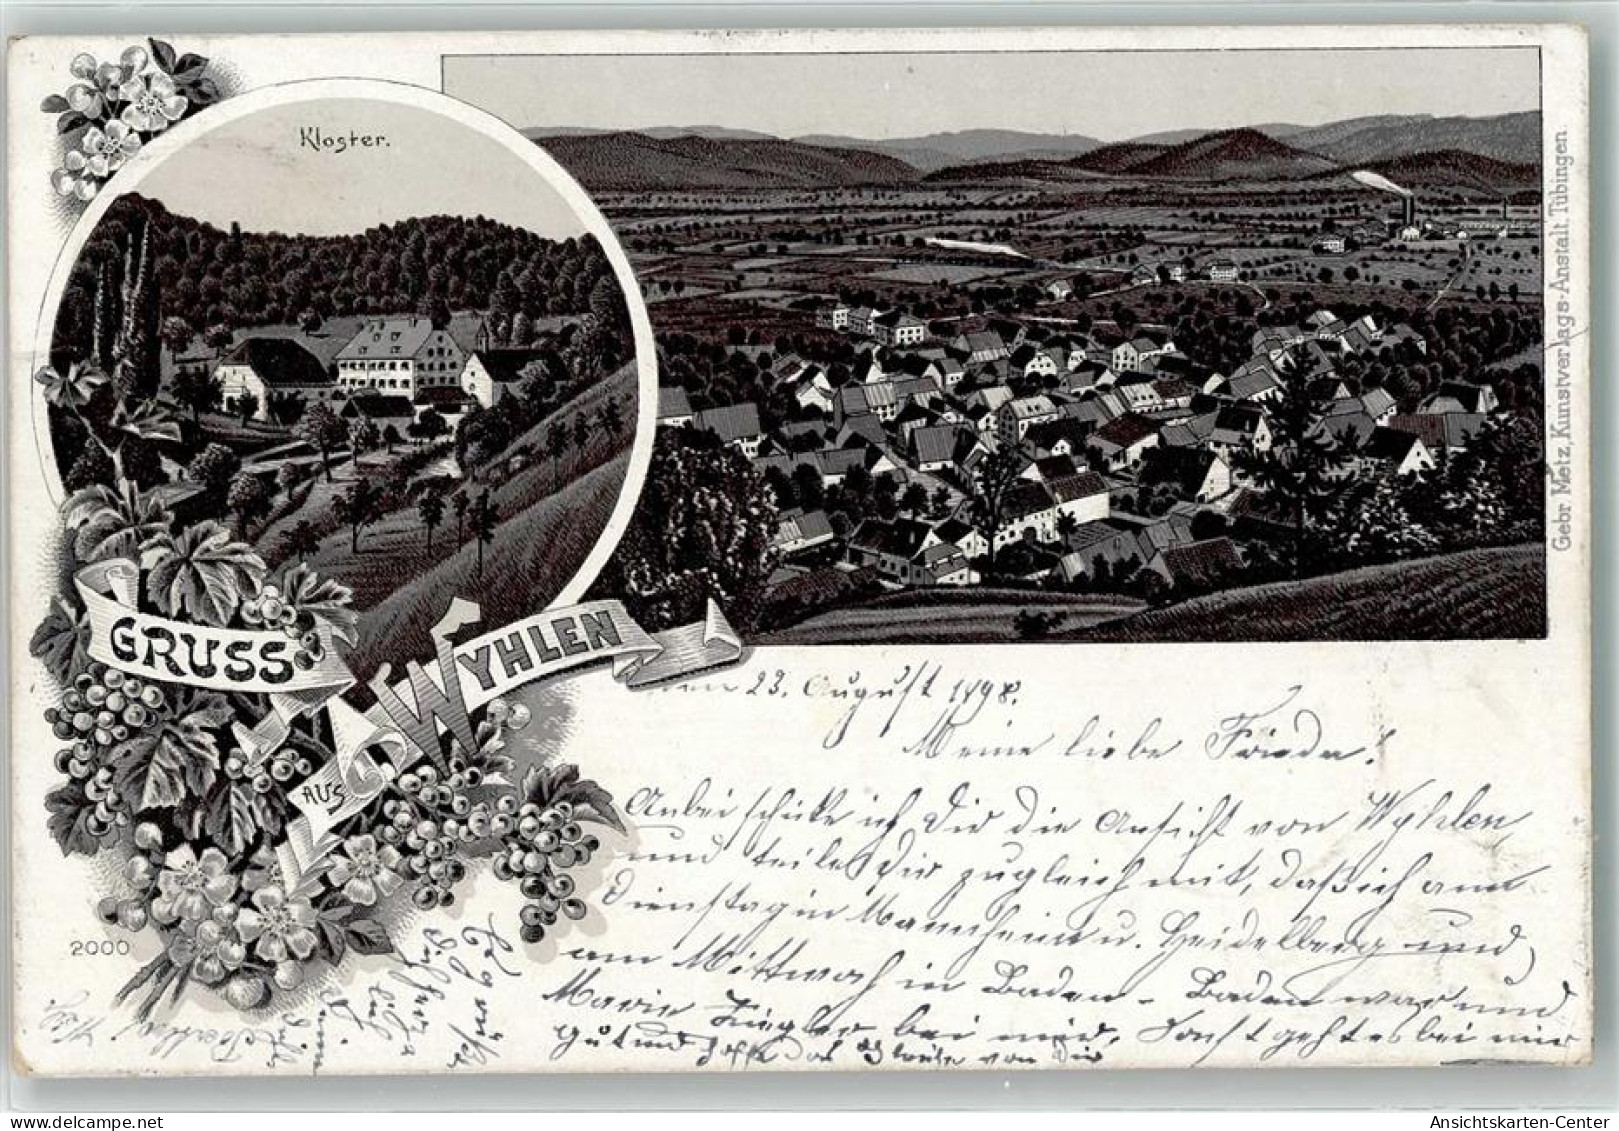 Kloster.
Gebr. Metz, Kunstverlags-Anstalt, Tübingen.
GRUSS
AUS
WYHLEN
23. August 1898.
Meine liebe Frieda!
Anbei schicke ich Dir die Ansicht von Wyhlen
und teile Dir zugleich mit, daß ich am
Dienstag in Mannheim u. Heidelberg und
am Mittwoch in Baden-Baden war und
Marie Ziegler bei mir. Sonst geht es bei mir
gut und hoffe das Gleiche von Dir
2000
Ansichtskarten-Center